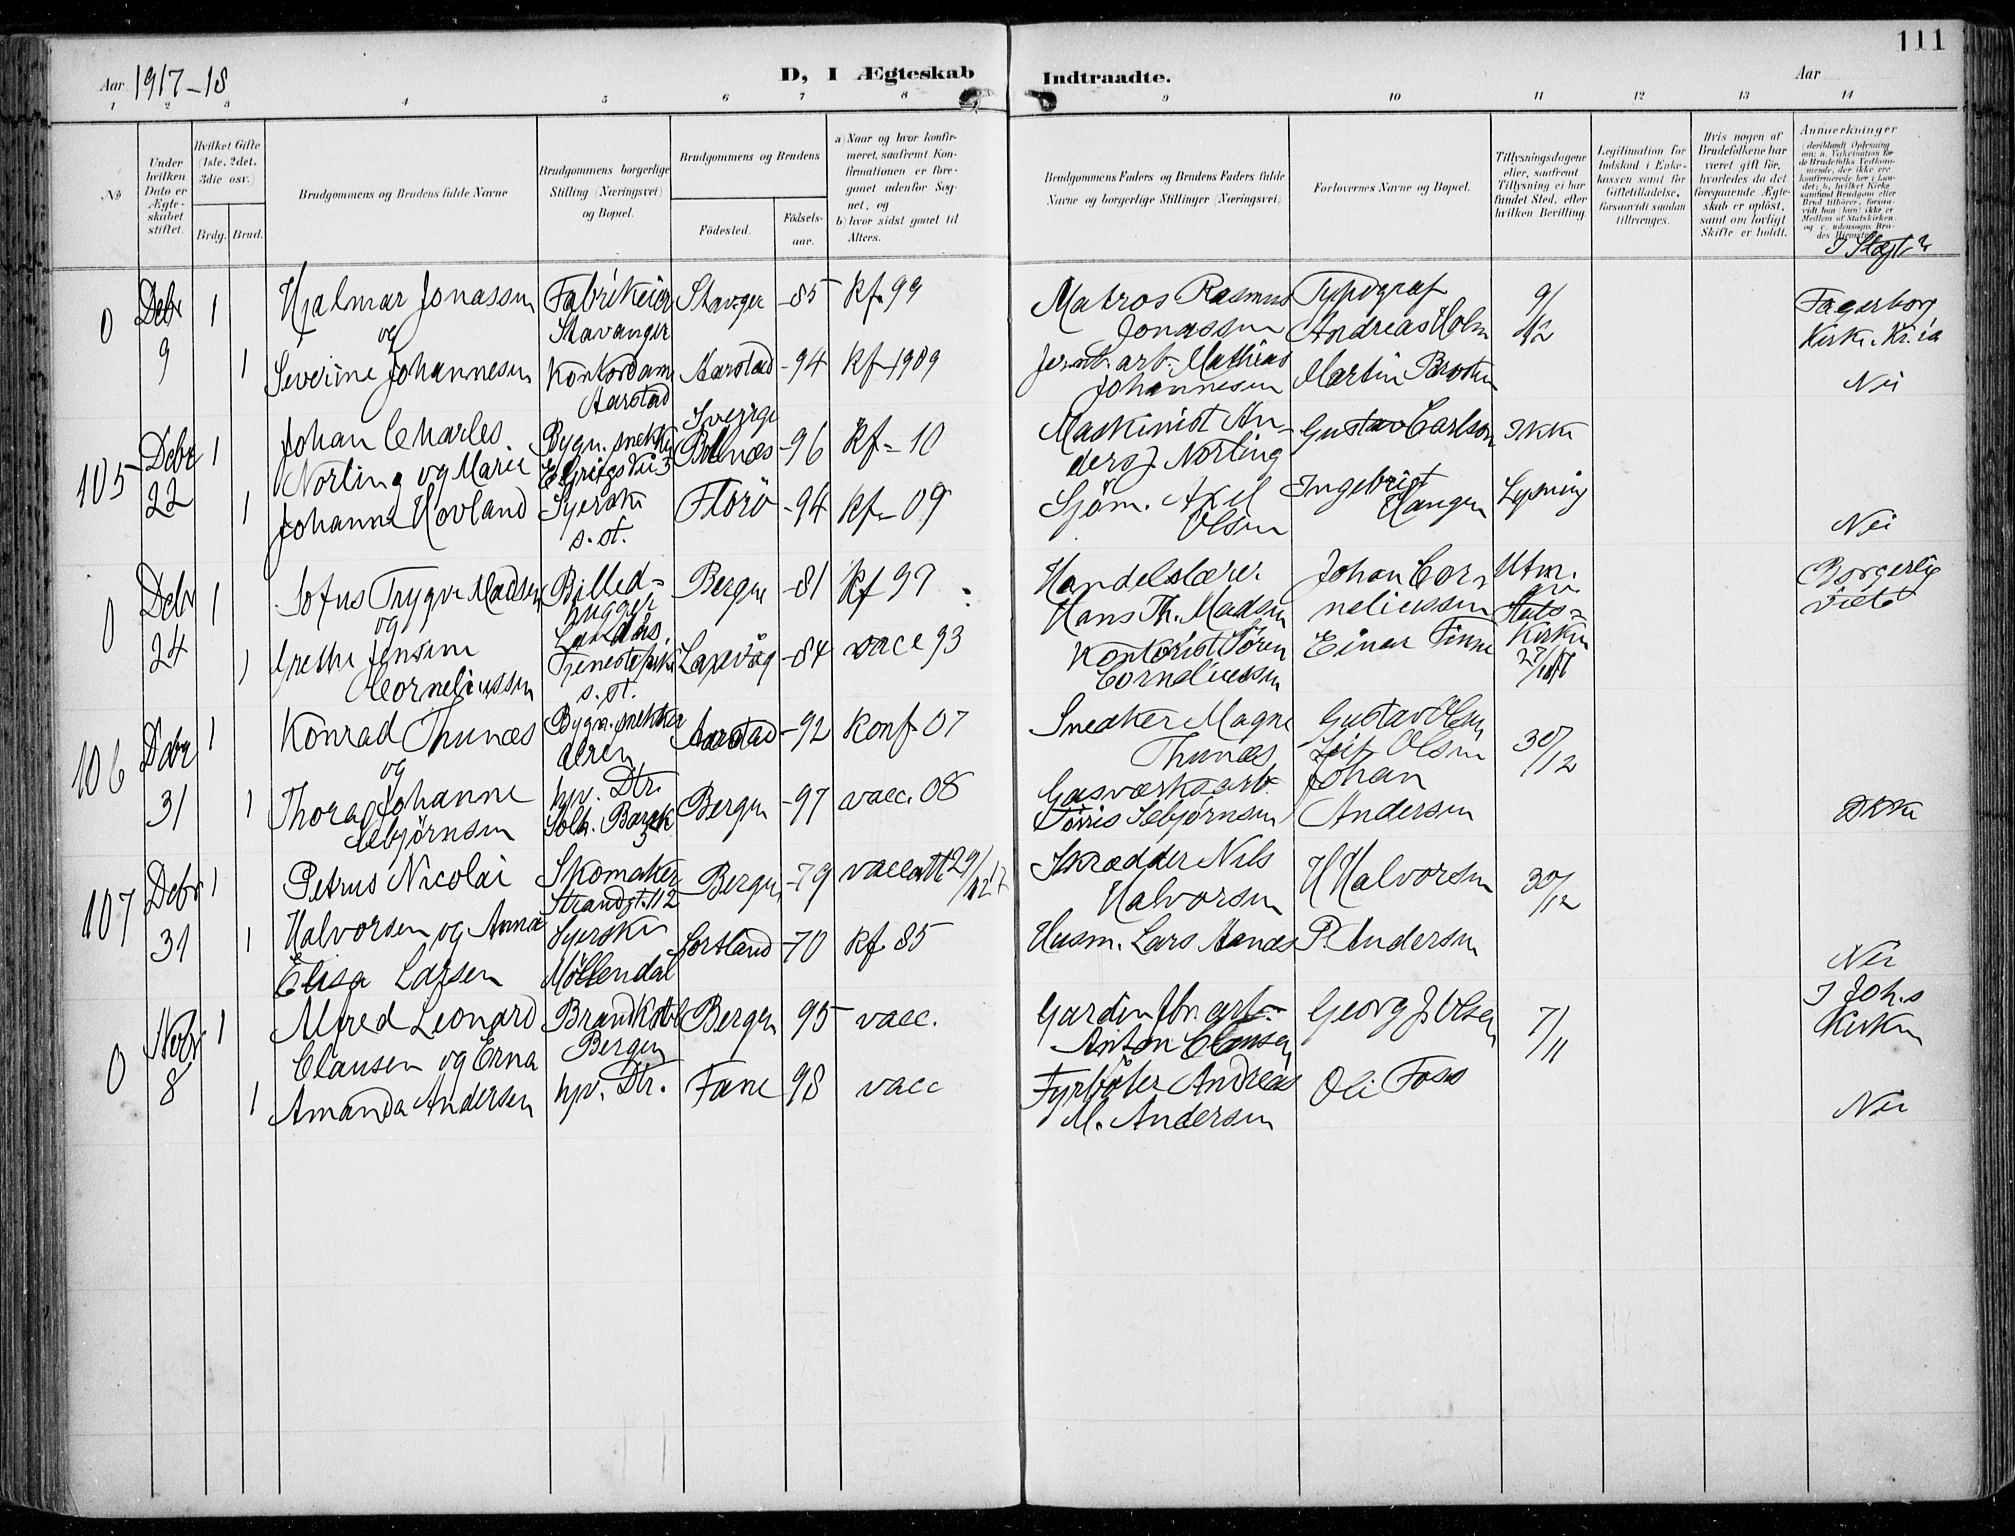 111
Aar 1917-18
D, I Ægteskab Indtraadte.
Aar
1 2 3 4 5 6 7 8 9 10 11 12 13 14
No
Under hvilken Dato er Ægteskabet stiftet.
Hvilket Gifte (1ste, 2det, 3die osv.)
Brdg. Brud.
Brudgommens og Brudens fulde Navne
Brudgommens borgerlige Stilling (Næringsvei) og Bopæl.
Brudgommens og Brudens
Fødested.
Fødselsaar.
a) Naar og hvor konfirmeret, saafremt Konfirmationen er foregaaet udenfor Sognet, og
b) hvor sidst gaaet til Alters.
Brudgommens Faders og Brudens Faders fulde Navne og borgerlige Stillinger (Næringsvei)
Forlovernes Navne og Bopæl.
Tillysningsdagene eller, saafremt Tillysning ei har fundet Sted, efter hvilken Bevilling.
Legitimation for Indskud i Enkekassen samt for Giftetilladelse, forsaavidt saadan tiltrænges.
Hvis nogen af Brudefolkene har været gift før, hvorledes da det foregaaende Ægteskab er opløst, samt om lovligt Skifte er holdt.
Anmerkninger
(deriblandt Oplysning om: a. Vakcination for de Brudefolks Vedkommende, der ikke ere konfirmerede her i Landet; b. hvilket Kirkesamfund Brudgom eller Brud tilhører, forsaavidt han (hun) ikke er Medlem af Statskirken, og c. udensogns Brudes Hjemsted.
0 Debr 9 1 Hjalmar Jonassen Fabrikeier Stavanger Stavger -85 Kf. 99 Matros Rasmus Jonassen Typograf Andreas Holm 9/12 Fagerborg Kirk. Kr.ia
og
1 Severine Johannesen Aarstad Aarstad -94 Kf 1909 arb. Mathias Johannesen Martin Nei
105 Debr 22 1 Johan Charles Norling og Marie Bygn. snekker Sverige -96 Kf- 10 Maskinist Anders J. Norling Gustav Carlson Ikke
1 Johanne Hovland Syerske s. st. Florö -94 Kf- 09 Sjöm. Axel Olsen Ingebrigt Haugen Lysning Nei
0 Debr 24 1 Sofus Trygve Madsen Billedhugger Landås. Bergen -81 Kf 97 Handelslærer Hans Th. Madsen Johan Corneliussen Utm. av Statskirken 27/ 17 Borgerlig viet
og
1 Grethe Jensine Corneliussen Tjenestepike s. st. Laxevåg -84 vacc 93 Kontorist Sören Corneliussen Einar Finne
106 Debr 31 1 Konrad Thunæs Bygn. snekker Aarstad -92 Konf 07 Snedker Magne Thunæs Gustav Olsen Leif Olsen 30/12
og
1 Thora Johanne Sebjörnsen hjv. Dtr. Solh. Barak 3 Bergen -97 vacc. 08 Gasværksarb. Sebjörnsen Johan Andersen
107 Debr 31 1 Petrus Nicolai Halvorsen og Anna Skomaker Strandgt. 112 Bergen -79 vaccatt 29/12 17 Skrædder Nils Halvorsen H Halvorsen 30/12
1 Elisa Larsen Syerske Möllendal Sortland -70 Kf 85 Husm. Lars Aanæs P. Andersen Nei
0 Novbr 8 1 Alfred Leonard Clausen og Erna Bergen Bergen 95 vacc. Gardinfbr. arb. Anton Clausen Georg J. Olsen 7/11 I Joh.s Kirken
1 Amanda Andersen hjv. Dtr. Fane 98 vacc Fyrböter Andreas M. Andersen Ole Foss Nei